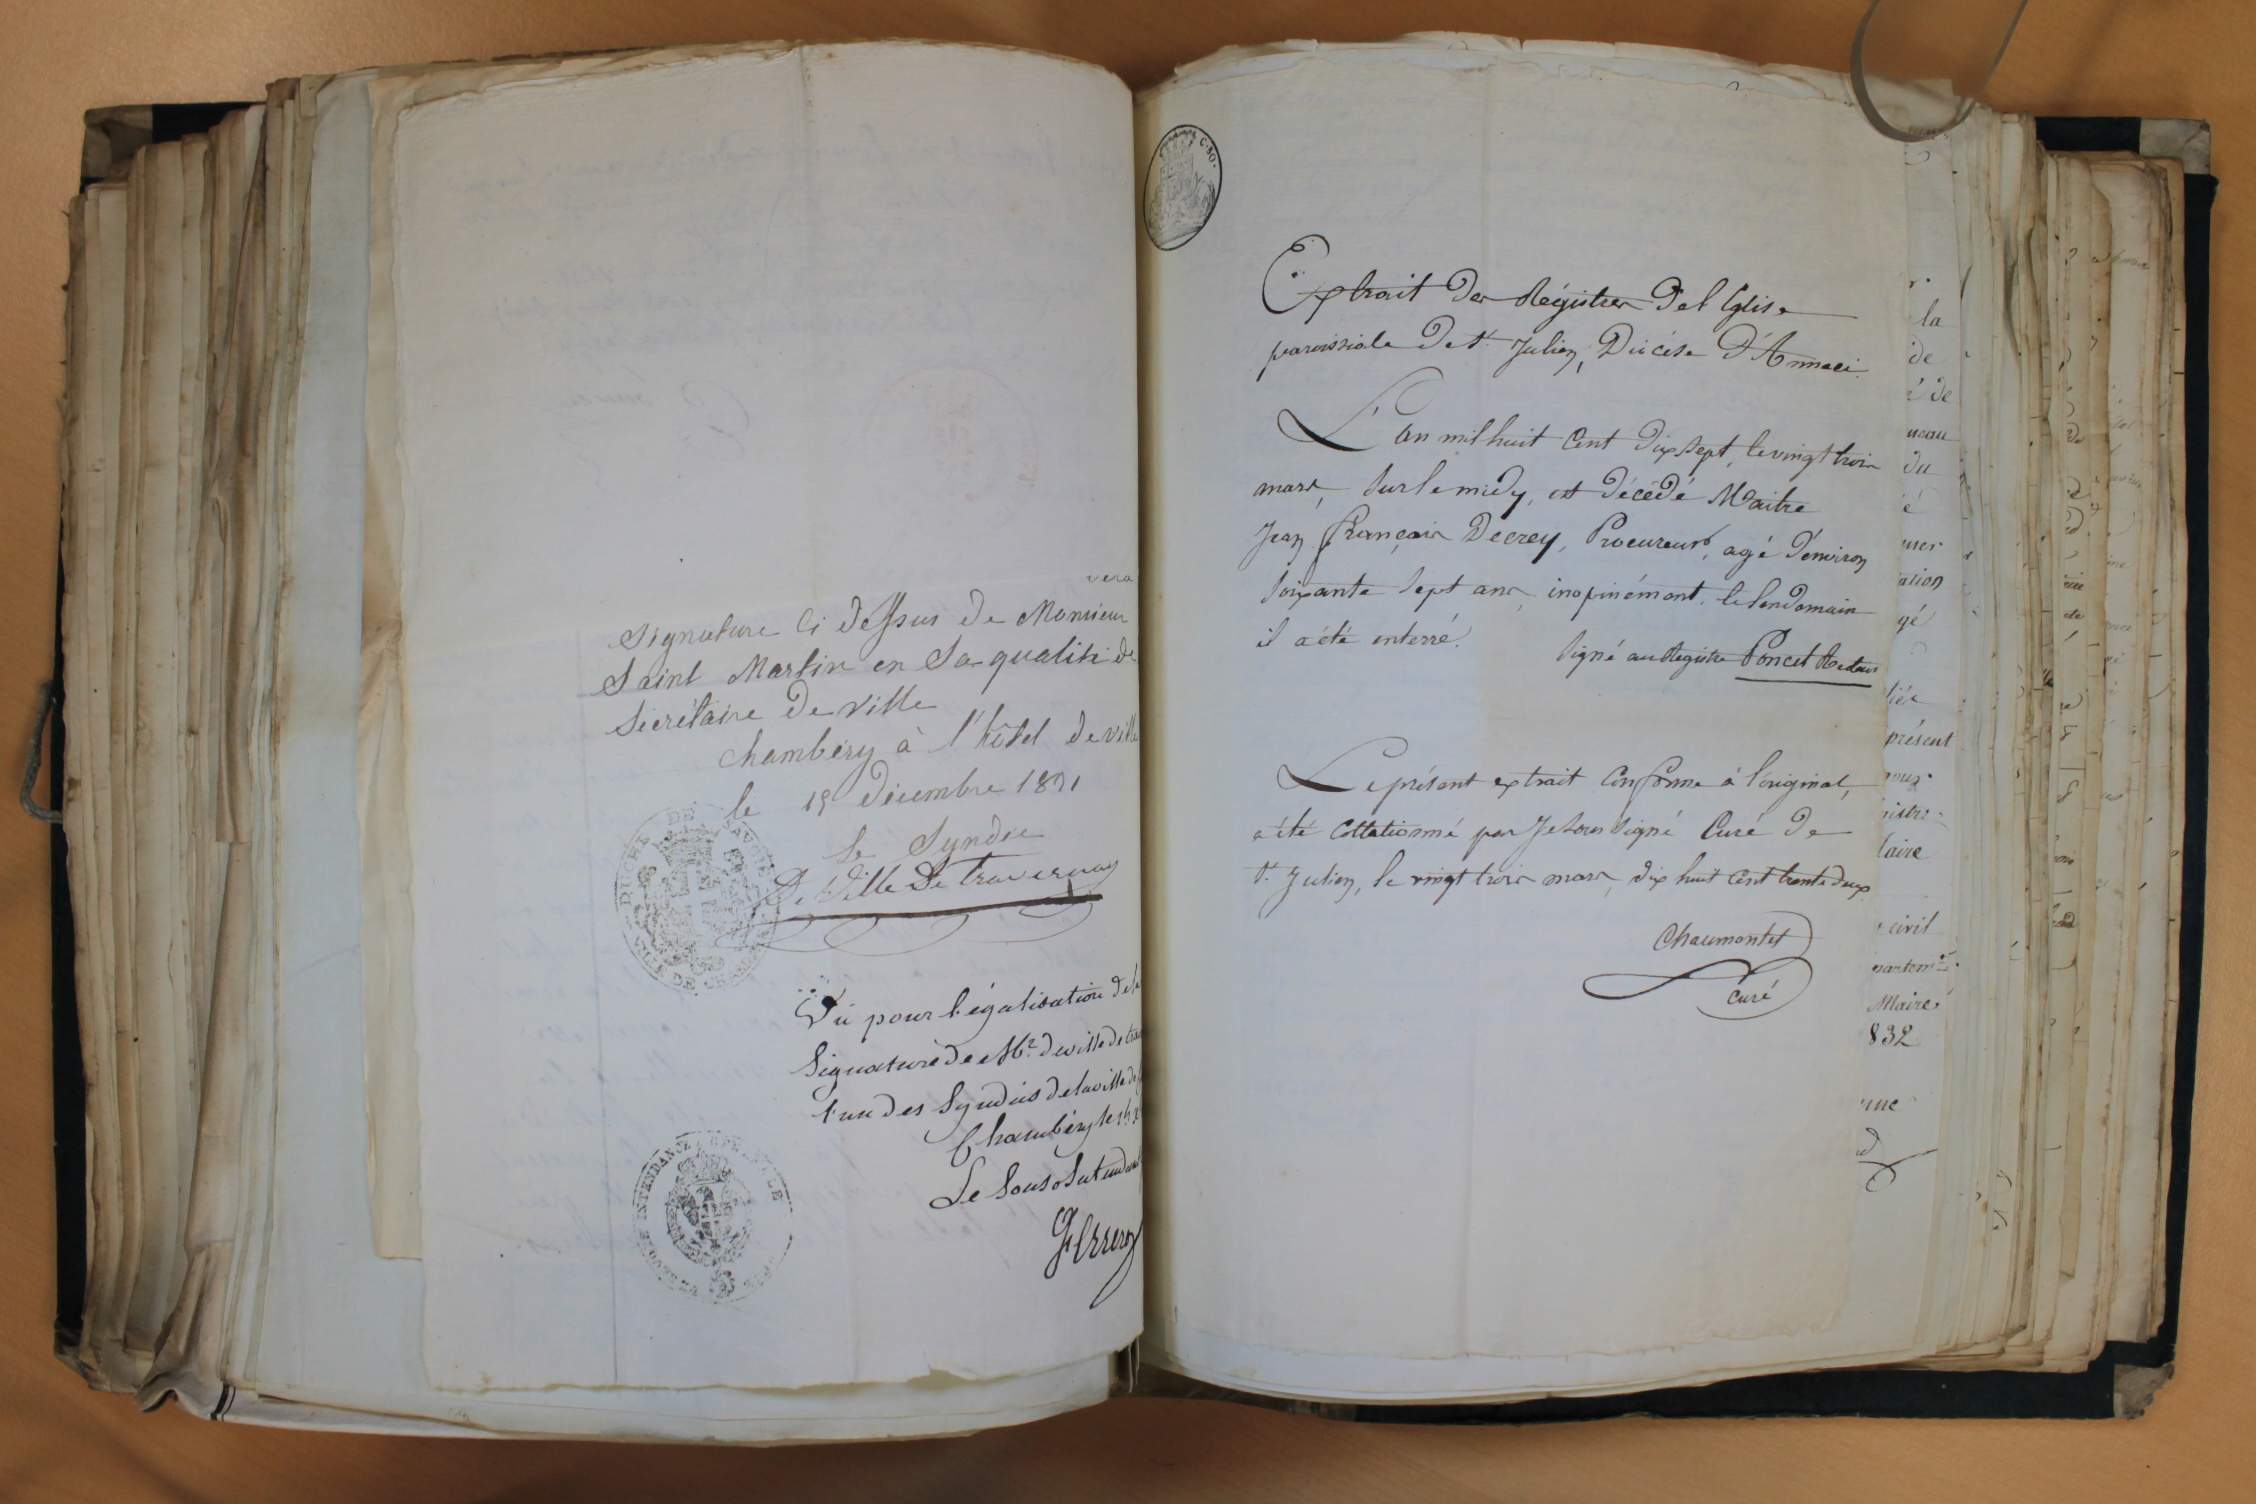 Signature ci dessus de Monsieur
Saint Martin en Sa qualité de
Secrétaire de Ville
Chambéry à l'hôtel de ville
le 15 décembre 1831
Le Syndic
De Ville De Travernay
DUCHÉ DE SAVOIE
VILLE DE CHAMBÉRY
Vu pour légalisation de la
Signature de Mr. Deville de
l'un des Syndics de la ville de
Chambéry le
Le Sous Intendant
Ferrero
INTENDANCE GENERALE
C. 50.
Extrait des Régistres de l'Eglise
paroissiale de St. Julien, Diocèse d'Anneci.
L'an mil huit Cent dix sept, le vingt trois
mars, sur le midy, est décédé Maitre
Jean François Decrey, Procureur, agé d'environ
soixante sept ans, inopinément. le lendemain
il a été enterré.
Signé au Registre Poncet Recteur
Le présent extrait Conforme à l'original,
a été collationné par Je Sous signé Curé de
St. Julien, le vingt trois mars, dix huit cent trente deux.
Chaumontet
Curé
la
de
é de
du
é
ation
gé
présent
pour
taire
civil
Maire
832